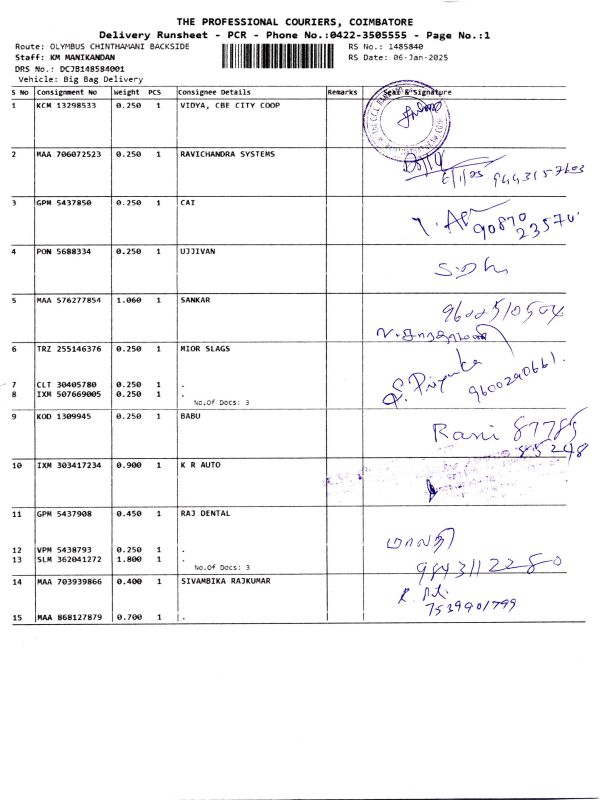 THE PROFESSIONAL COURIERS, COIMBATORE
Delivery Runsheet - PCR - Phone No.:0422-3505555 - Page No.:1
Route: OLYMBUS CHINTHAMANI BACKSIDE RS No.: 1485840
Staff: KM MANIKANDAN RS Date: 06-Jan-2025
DRS No.: DCJB148584001
Vehicle: Big Bag Delivery
S No Consignment No Weight PCS Consignee Details Remarks Seal & Signature
1 KCM 13298533 0.250 1 VIDYA, CBE CITY COOP
2 MAA 706072523 0.250 1 RAVICHANDRA SYSTEMS
6/1/25 9443157603
3 GPM 5437850 0.250 1 CAI
90870
23576
4 PON 5688334 0.250 1 UJJIVAN
5 MAA 576277854 1.060 1 SANKAR
6 TRZ 255146376 0.250 1 MIOR SLAGS
S. Priyanka 9600290661.
7 CLT 30405780 0.250 1 .
8 IXM 507669005 0.250 1 .
No.Of Docs: 3
9 KOD 1309945 0.250 1 BABU
Rani 87785
85248
10 IXM 303417234 0.900 1 K R AUTO
11 GPM 5437908 0.450 1 RAJ DENTAL
மாலதி
12 VPM 5438793 0.250 1 .
13 SLM 362041272 1.800 1 .
No.Of Docs: 3
9843112280
14 MAA 703939866 0.400 1 SIVAMBIKA RAJKUMAR
7539901799
15 MAA 868127879 0.700 1 .